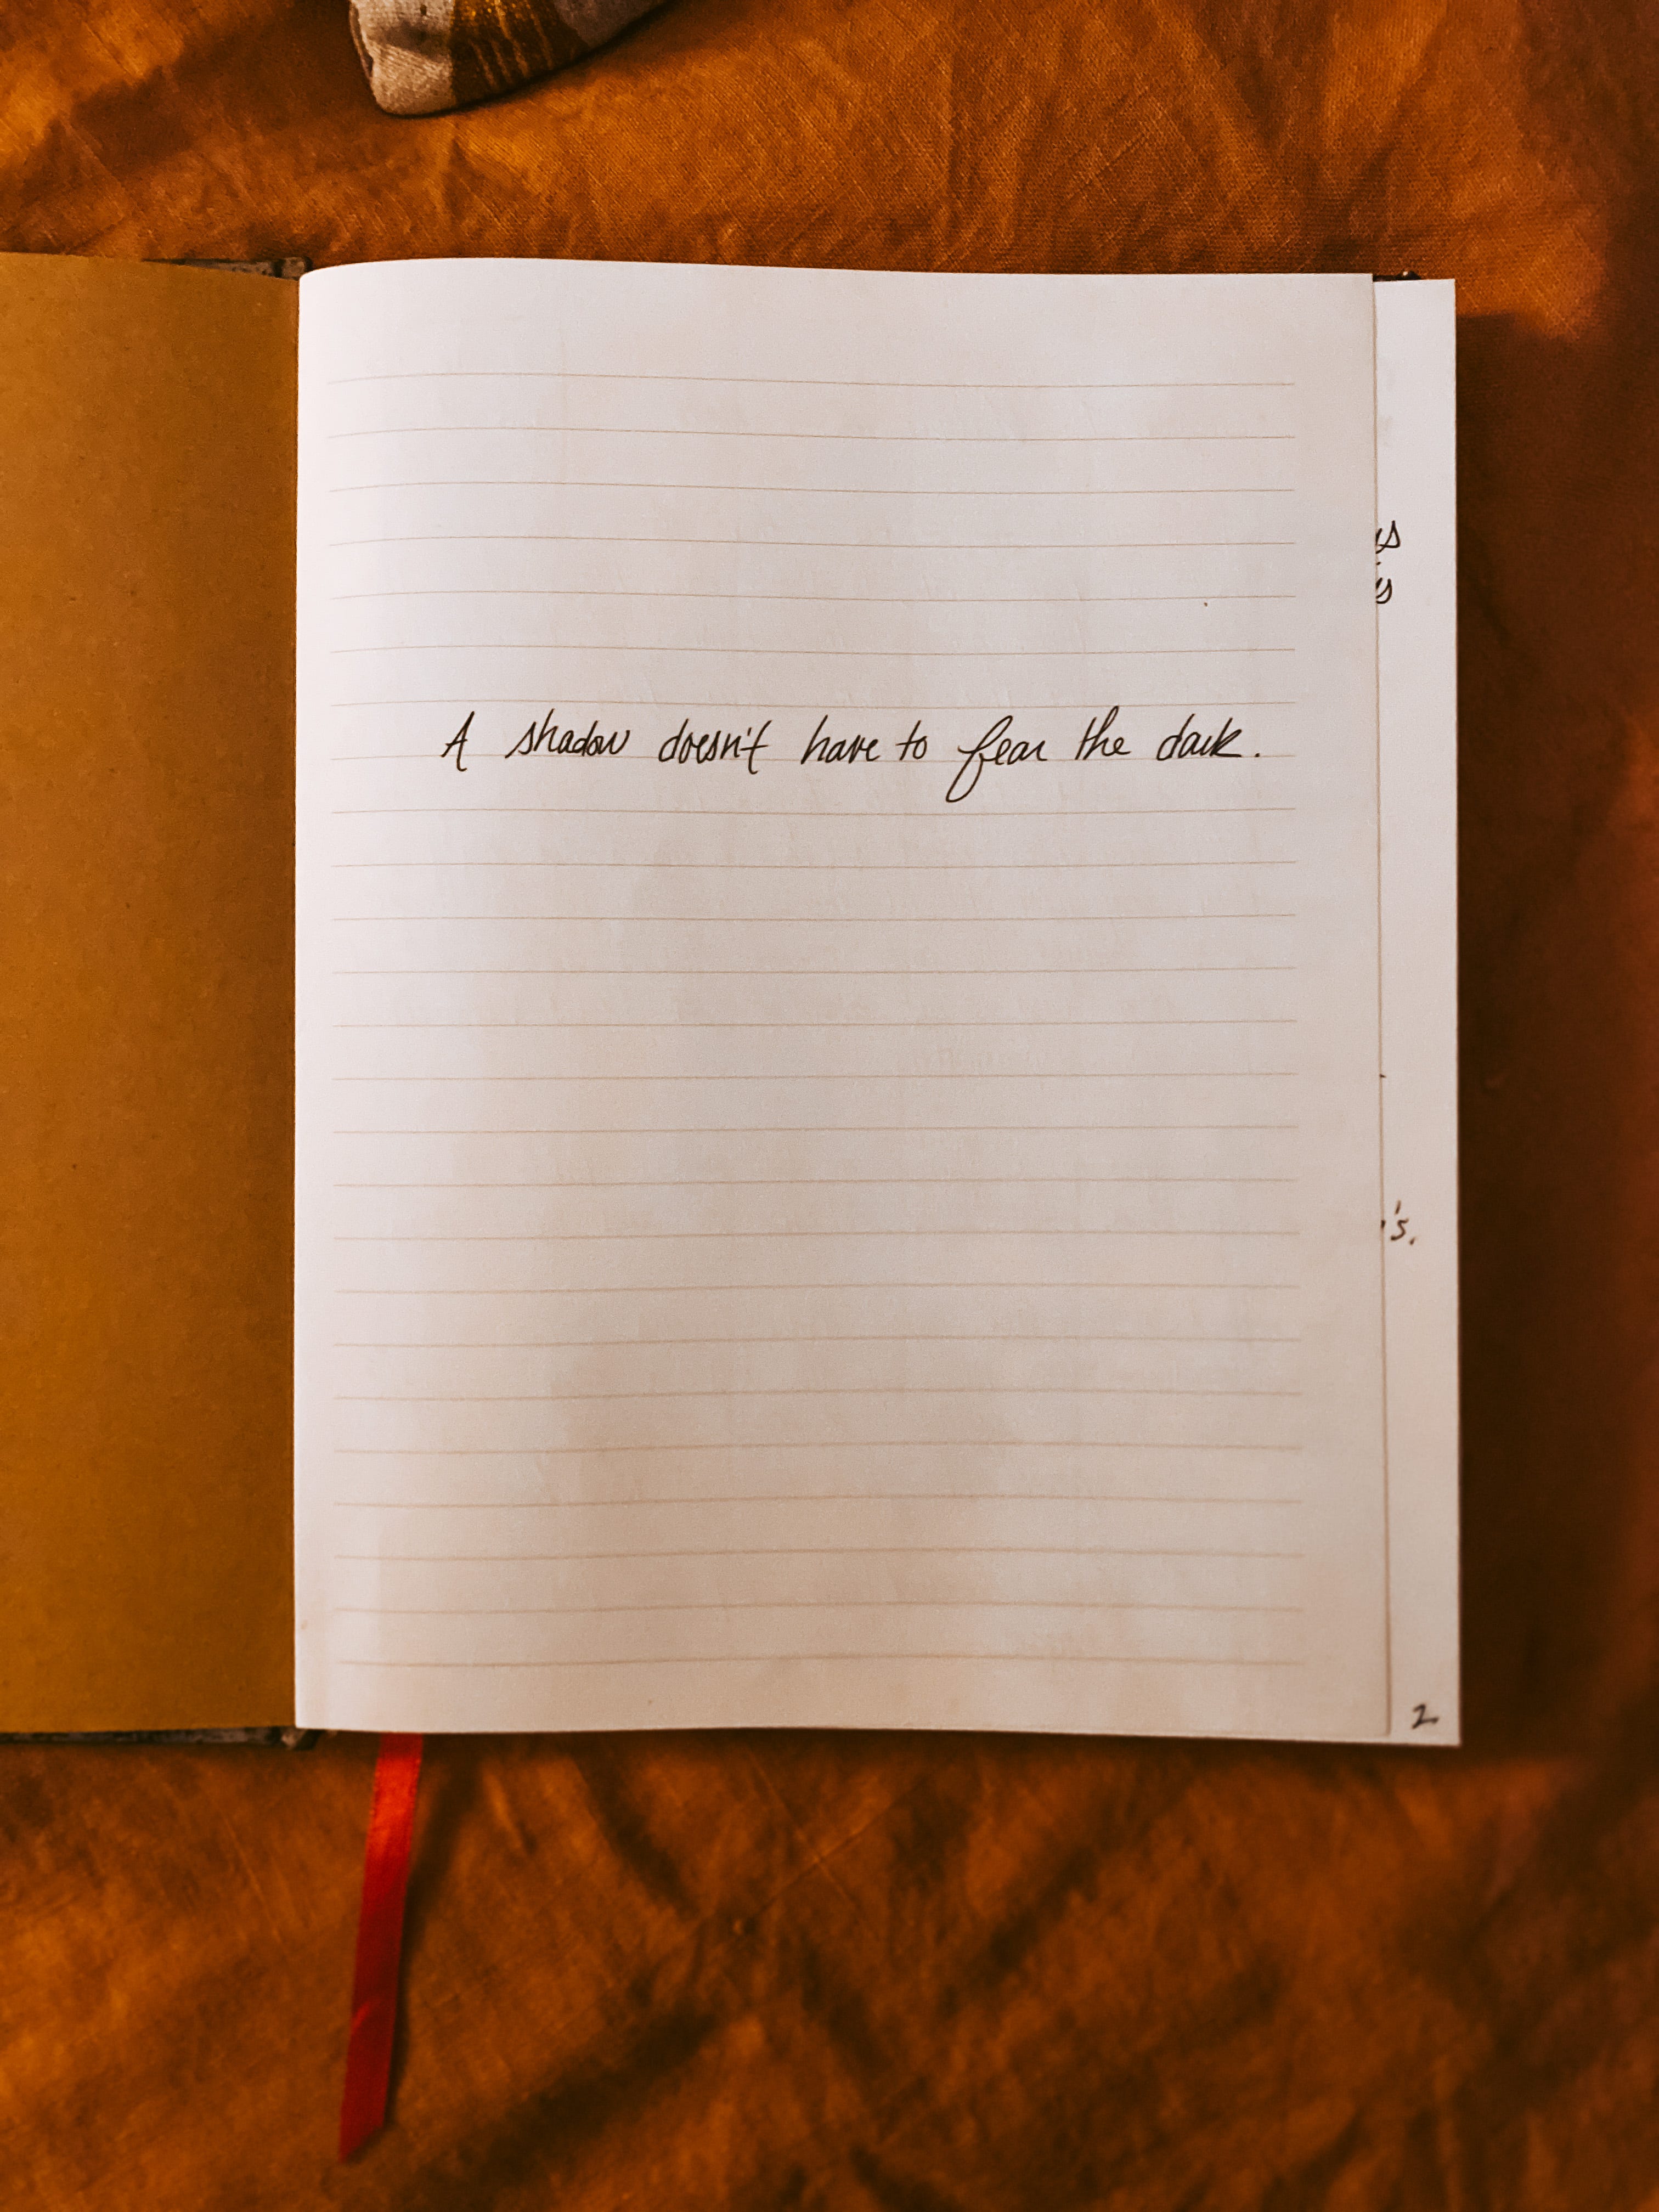 A shadow doesn't have to fear the dark.
's.
2